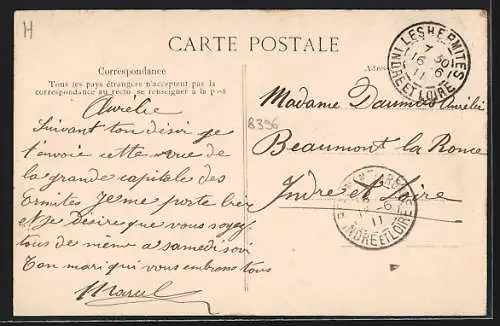 H
CARTE POSTALE
Correspondance
Tous les pays étrangers n'acceptent pas la
correspondance au recto se renseigner à la poste
LES HERMITES
7 30
16 6
11
INDRE ET LOIRE
Aurélie
Suivant ton désir je
t'envoie cette vue de
la grande capitale des
Ermites Je me porte bien
et je désire que vous soyez
tous de même a samedi soir
Ton mari qui vous embrasse tous
Marcel
8396
Madame Daumois Aurélie
Beaumont la Ronce
Indre et Loire
16 6
11
INDRE ET LOIRE